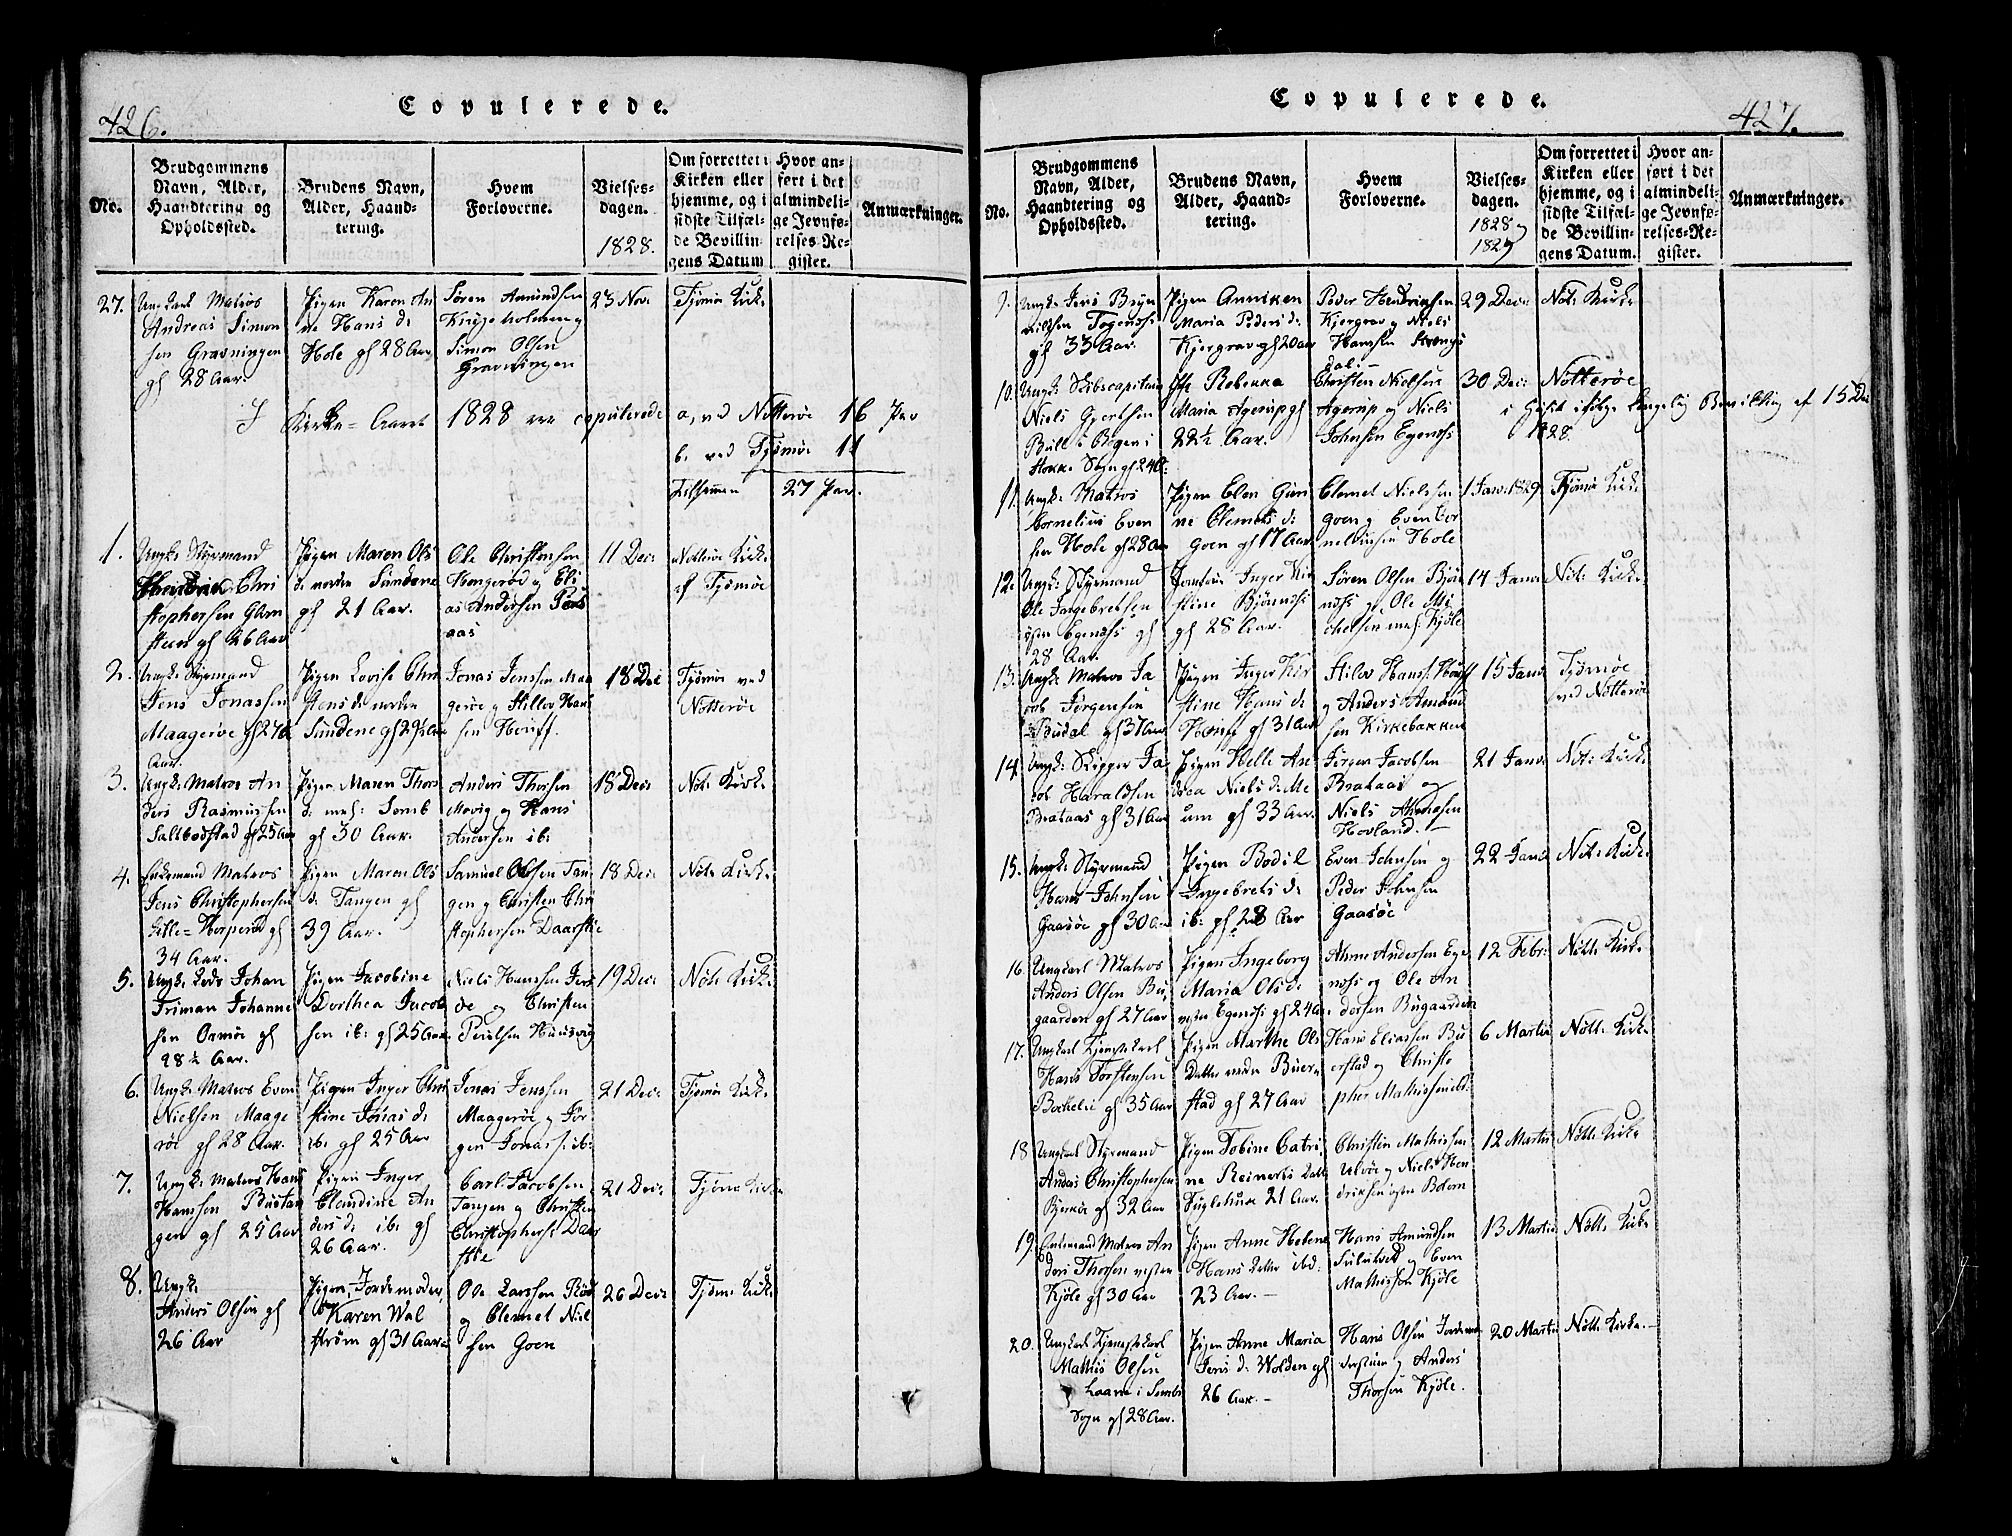 426.
Copulerede.
No.
Brudgommens
Navn, Alder,
Haandtering og
Opholdssted.
Brudens Navn,
Alder, Haand-
tering.
Hvem
Forloverne.
Vielses-
dagen.
1828.
Om forrettet i
Kirken eller
hjemme, og i
sidste Tilfæl-
de Bevillin-
gens Datum
Hvor an-
ført i det
almindeli-
ge Jevnfø-
relses-Re-
gister.
Anmærkninger.
27.
Ungkarl Matros
Andreas Simon
sen Gravningen
gl 28 Aar.
Pigen Karen An
ne Hans d:
Hole gl 28 Aar
Søren Amundsen
Knøzeholmen og
Simon Olsen
Gravningen
23 Nov:
Tjømø Kirk:
I Kirke-Aaret 1828 ere copulerede a, ved Nøtterøe 16 Par
b, ved Tjømøe 11
Tilsammen 27 Par.
1.
Ungk: Styrmand
Chri
stophersen Glom
steen gl 26 Aar
Pigen Maren Ols
d: nordre Sundene
gl 21 Aar.
Ole Christensen
Kongerød og Eli
as Andersen
aas
11 Dec:
Nøtterøe Kirk:
af Tjømøe
2.
Ungk: Styrmand
Jens Jonassen
Maagerøe gl 27½
Aar.
Pigen Lovise Chri
stens d: nordre
Sundene gl 22½ Aar
Jonas Jenssen Maa
gerøe og Hillov Hans
sen Honff.
18 Dec
Tjømøe ved
Nøtterøe
3.
Ungk: Matros An
ders Rasmussen
Saltbodstad gl 25 Aar
Pigen Maren Thors
d: mel: Semb
gl 30 Aar.
Anders Thorsen
Movig og Hans
Andersen ib:
18 Dec:
Nøt: Kirk:
4.
Enkemand Matros
Jens Christophersen
Lille-Horperød gl
34 Aar.
Pigen Maren Ols
d: Tangen gl
39 Aar.
Samuel Olssen Tan
gen og Christen Chri
stophersen Daarstie
18 Dec:
Nøt: Kirk:
5.
Ungk: Lods Johan
Triman Johanne
sen Ormøe gl
28½ Aar.
Pigen Jacobine
Dorthea Jacob
sen ib: gl 25 Aar
Niels Hanssen Jers
øe og Christen
Poulsen Hausvig
19 Dec:
Nøt: Kirk:
6.
Ungk: Matros Even
Nielsen Maage
røe gl 28 Aar.
Pigen Inger Chri
stine Jonas d:
ib: gl 25 Aar
Jonas Jenssen
Maagerøe og Jør
gen Jonass: ib:
21 Dec:
Tjømø Kirk:
7.
Ungk: Matros Hans
Hanssen Bustan
gen gl 25 Aar
Pigen Inger
Clemdine An
ders d: ib: gl
26 Aar.
Carl Jacobsen
Tangen og Christen
Christophers: Daar
stie
21 Dec:
Tjømø Kirke
8.
Ungk:
Anders Olsen gl
26 Aar
Pigen, Jordemoder,
Karen Wal
strøm gl 31 Aar
Ole Larssen Rød
og Clemet Niel
sen Goen
26 Dec:
Tjøm: Kirk:
427.
Copulerede.
No.
Brudgommens
Navn, Alder,
Haandtering og
Opholdssted.
Brudens Navn,
Alder, Haand-
tering.
Hvem
Forloverne.
Vielses-
dagen.
1828 og
1829
Om forrettet i
Kirken eller
hjemme, og i
sidste Tilfæl-
de Bevillin-
gens Datum.
Hvor an-
ført i det
almindeli-
ge Jevnfø-
relses-Re-
gister.
Anmærkninger.
9.
Ungk: Jens Bryn
nildsen
gl 33 Aar.
Pigen Anniken
Maria Peders d:
Kjergrav gl 20 Aar
Peder Hendriksen
Kjergrav og Niels
Hanssen Strengs
dal.
29 Dec:
Nøt: Kirke
10.
Ungk: Skibscapitain
Niels Gjertsen
Bull i Bogen i
Stokke Sogn gl 24 A:
Rebekka
Maria Agerup gl
22½ Aar.
Christen Nielsen
Agerup og Niels
Johnsen Egenæss
30 Dec:
Nøtterøe
i Huset ifølge kongelig Bevilling af 15 Dec
1828.
11.
Ungk: Matros
Cornelius Even
sen Hole gl 28 Aar
Pigen Elen Guri
ne Clemets d:
Goen gl 17 Aar
Clemet Nielssen
Goen og Even Cor
neliusen Hole
1 Jan: 1829
Tjømø Kirk:
12.
Ungk: Styrmand
Ole Ingebretsen
østre Egenæss gl
28 Aar.
Jomfrue Inger Kir
stine Bjønness
gl 28 Aar.
Søren Olsen Bjøn
næss og Ole Mi
chelsen mel. Kjøle
14 Jan:
Nøt: Kirk:
13.
Ungk: Matros Ja
cob Jørgensen
Budal gl 37 Aar
Pigen Inger Kir
stine Hans d:
Honff gl 31 Aar
Hilov Hanss: Honff
og Anders Amund
sen Kirkebakken
15 Jan:
Tjømøe
ved Nøtterøe
14.
Ungk: Skipper Ja
cob Haraldsen
Brataas gl 31 Aar
Pigen Helle An
drea Niels d: Me
um gl 33 Aar.
Jørgen Jacobsen
Brataas og
Niels
Hovland.
21 Jan:
Nøt: Kirk:
15.
Ungk: Styrmand
Hans Johnsen
Gaasøe gl 30 Aar
Pigen Bodil
Ingebrets d:
ib: gl 28 Aar
Even Johnsen og
Peder Johnsen
Gaasøe
22 Jan:
Nøt: Kirk:
16.
Ungkarl Matros
Anders Olsen Bu
gaarden gl 27 Aar
Pigen Ingeborg
Maria Ols d:
vestre Egenæss gl 24 Aar
Anne Andersen Ege
næss og Ole An
dersen Bugaarden
12 Febr:
Nøtt: Kirk:
17.
Ungkarl Tjenestekarl
Hans Torstensen
Bockelie gl 35 Aar
Pigen Marthe Ols
Datter nedre Buer
stad gl 27 Aar
Hans Eliassen Bu
erstad og Christo
pher Mathissen ibd.
6 Martii
Nøtt: Kirke
18
Ungkarl Styrmand
Anders Christophersen
Bjerkøe gl 32 Aar
Pigen Tobine Catri
ne Reinerts Datt
Fuglehuk 21 Aar.
Christen Mathissen
Ulvøe og Niels Hen
driksen østre Bolærn
12 Martii
Nøtt: Kirke
19.
Enkemand Matros An
ders Thorsen vestre
Kjøle gl 30 Aar
Pigen Anne Helene
Hans Datter ibd:
23 Aar.
Hans Amundsen
og Even
Mathissen Kjøle
13 Martii
Nøtt: Kirke
20.
Ungkarl Tjenestekarl
Mathis Olsen
Laane i Sembs
Sogn gl 28 Aar.
Pigen Anne Maria
Jens d: Wolden gl
26 Aar.
Hans Olsen
og Anders
Thorsen Kjøle.
20 Martii
Nøtt: Kirke.